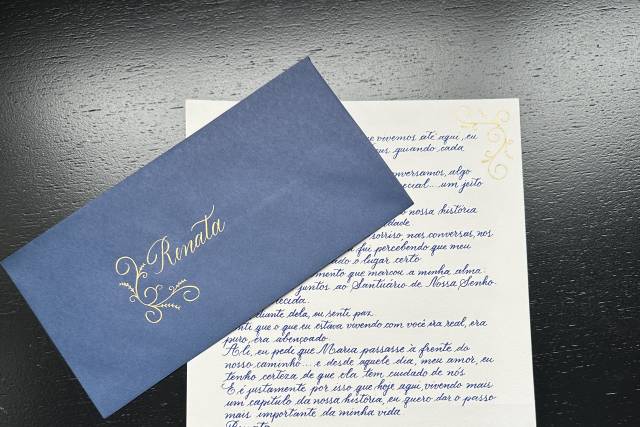 Renata
vivemos até aqui, eu
guando cada
conversamos, algo
especial... um jeito
nossa história
sorriso, nas conversas, nos
fui percebendo que meu
o lugar certo.
que marcou a minha alma.
juntos ao Santuário de Nossa Senho-
diante dela, eu senti paz.
que o que eu estava vivendo com você era real, era
puro, era abençoado.
Ali, eu pedi que Maria passasse à frente do
nosso caminho... e desde aquele dia, meu amor, eu
tenho certeza de que ela tem cuidado de nós.
E é justamente por isso que hoje aqui, vivendo mais
um capítulo da nossa história, eu quero dar o passo
mais importante da minha vida.
Renata